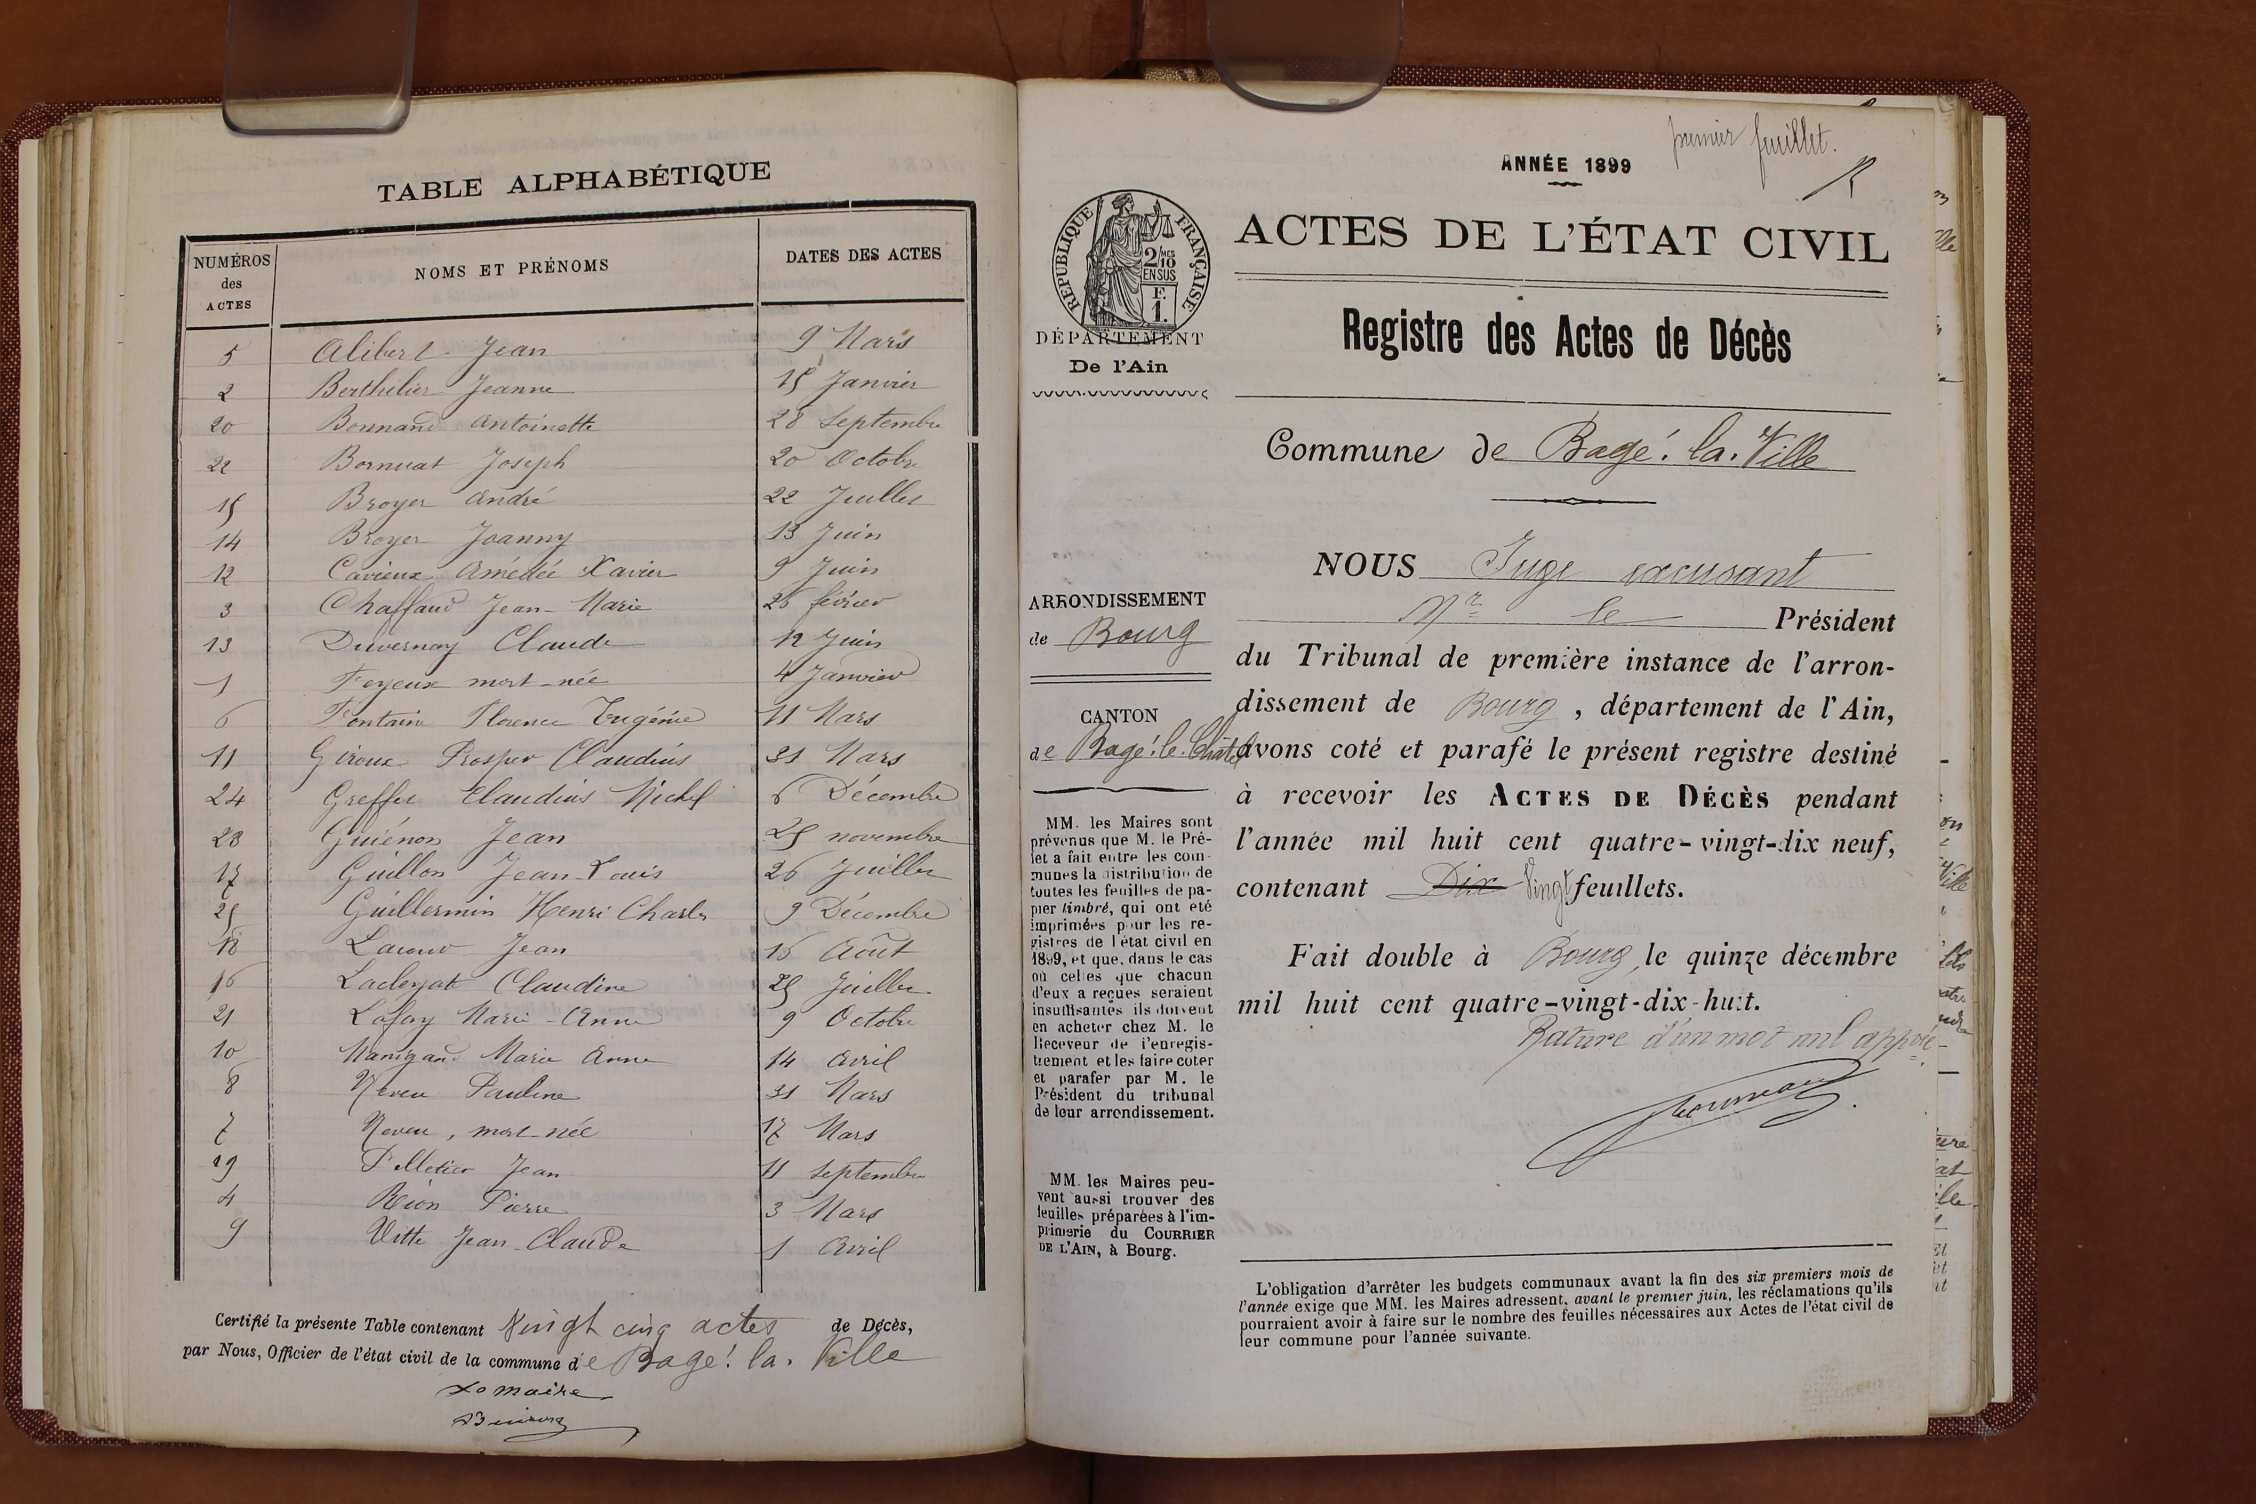 TABLE ALPHABÉTIQUE
NUMÉROS des ACTES
NOMS ET PRÉNOMS
DATES DES ACTES
5 Alibert Jean 9 Mars
2 Berthelier Jeanne 15 Janvier
20 Bonnand Antoinette 28 Septembre
22 Bornuat Joseph 20 Octobre
15 Broyer André 22 Juillet
14 Broyer Joanny 13 Juin
12 Cavieux Amédée Xavier 9 Juin
3 Chaffaud Jean-Marie 26 février
13 Duvernay Claude 12 Juin
1 Feyeux mort-née 4 Janvier
6 Fontaine Florence Eugénie 11 Mars
11 Giroux Prosper Claudius 31 Mars
24 Greffet Claudius Michel 6 Décembre
23 Guiénon Jean 25 novembre
17 Guillon Jean-Louis 26 Juillet
25 Guillermin Henri Charles 9 Décembre
18 Jean 16 Août
16 Claudine 25 Juillet
21 Lafay Marie-Anne 9 Octobre
10 Manigand Marie Anne 14 Avril
8 Neveu Pauline 31 Mars
7 Neveu, mort-née 17 Mars
19 Pelletier Jean 11 Septembre
4 Réon Pierre 3 Mars
9 Vitte Jean-Claude 1 Avril
Certifié la présente Table contenant Vingt cinq actes de Décès,
par Nous, Officier de l'état civil de la commune de Bagé-la-Ville
Le maire
premier feuillet.
ANNÉE 1899
RÉPUBLIQUE FRANÇAISE
2/10 MES
EN SUS
F.
1.
DÉPARTEMENT
De l'Ain
ARRONDISSEMENT
de Bourg
CANTON
de Bagé-le-Châtel
MM. les Maires sont
prévenus que M. le Pré-
fet a fait entre les com-
munes la distribution de
toutes les feuilles de pa-
pier timbré, qui ont été
imprimées pour les re-
gistres de l'état civil en
1899, et que, dans le cas
où celles que chacun
d'eux a reçues seraient
insuffisantes ils doivent
en acheter chez M. le
Receveur de l'enregis-
trement et les faire coter
et parafer par M. le
Président du tribunal
de leur arrondissement.
MM. les Maires peu-
vent aussi trouver des
feuilles préparées à l'im-
primerie du COURRIER
DE L'AIN, à Bourg.
ACTES DE L'ÉTAT CIVIL
Registre des Actes de Décès
Commune de Bagé-la-Ville
NOUS Juge excusant
Mr le Président
du Tribunal de première instance de l'arron-
dissement de Bourg, département de l'Ain,
avons coté et parafé le présent registre destiné
à recevoir les ACTES DE DÉCÈS pendant
l'année mil huit cent quatre-vingt-dix neuf,
contenant Dix Vingt feuillets.
Fait double à Bourg, le quinze décembre
mil huit cent quatre-vingt-dix-huit.
Rature d'un mot nul appvée
L'obligation d'arrêter les budgets communaux avant la fin des six premiers mois de
l'année exige que MM. les Maires adressent, avant le premier juin, les réclamations qu'ils
pourraient avoir à faire sur le nombre des feuilles nécessaires aux Actes de l'état civil de
leur commune pour l'année suivante.